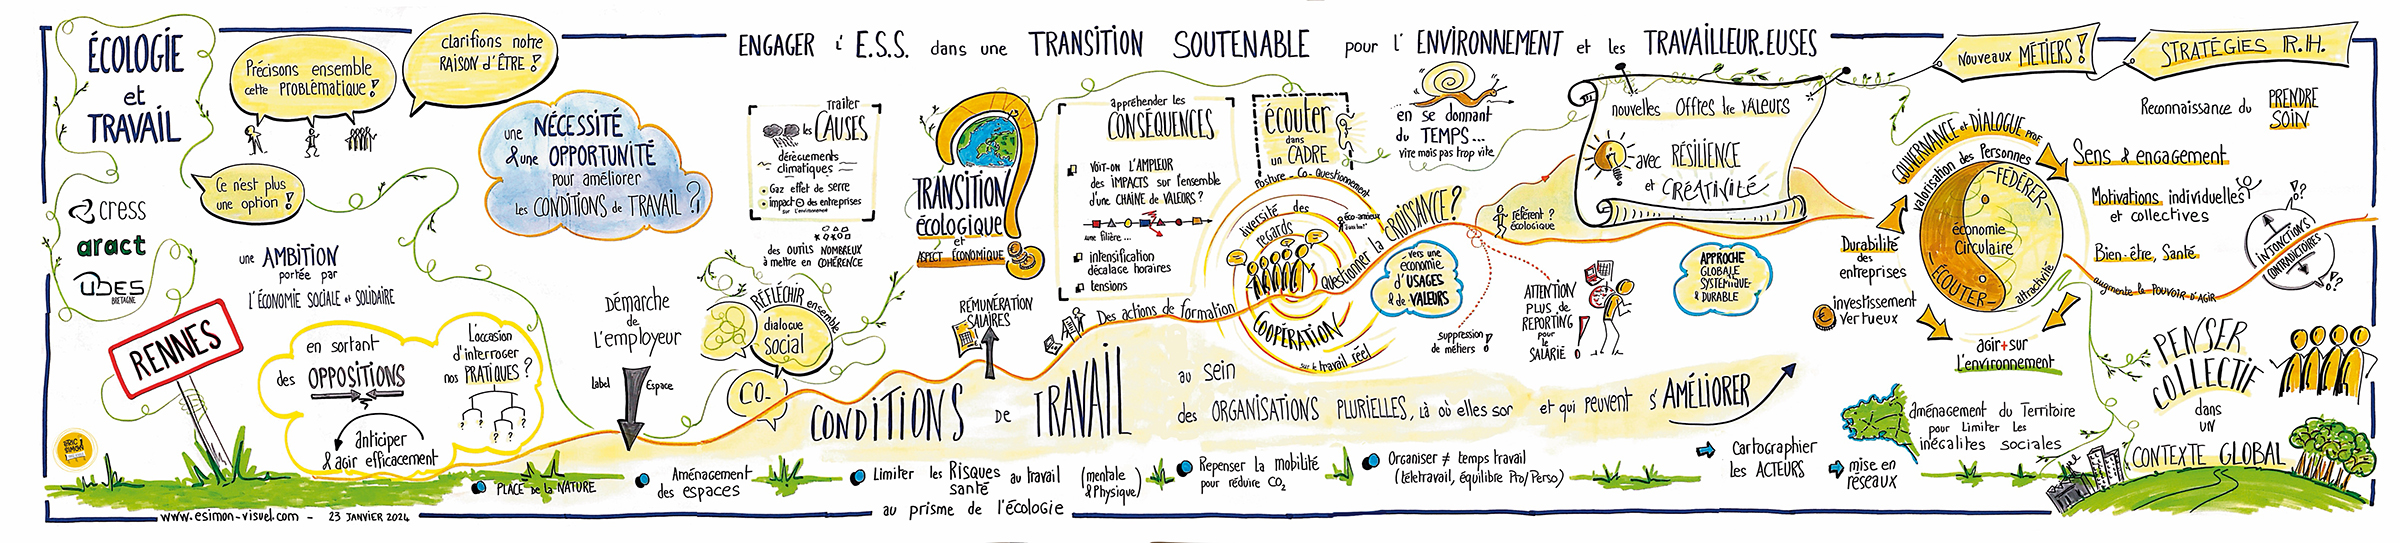 ÉCOLOGIE
et
TRAVAIL
Précisons ensemble
cette PROBLÉMATIQUE !
clarifions notre
RAISON d'ÊTRE !
Ce n'est plus
une option !
cress
aract
UDES
BRETAGNE
RENNES
ERIC
SIMON
une AMBITION
portée par
L'ÉCONOMIE SOCIALE et SOLIDAIRE
une NÉCESSITÉ
& une OPPORTUNITÉ
pour améliorer
les CONDITIONS de TRAVAIL ?
en sortant
des OPPOSITIONS
anticiper
& agir efficacement
L'occasion
d'interroger
nos PRATIQUES ?
? ? ? ?
Démarche
de
L'employeur
Label
Espace
ENGAGER L'E.S.S. dans une TRANSITION SOUTENABLE pour L'ENVIRONNEMENT et les TRAVAILLEUR.EUSES
traiter
les CAUSES
dérèglements
climatiques
Gaz effet de serre
impact des entreprises
sur l'environnement
des OUTILS NOMBREUX
à mettre en COHÉRENCE
RÉFLÉCHIR ensemble
dialogue
social
CO-
TRANSITION
écologique
et
ASPECT ÉCONOMIQUE
RÉMUNÉRATION
SALAIRES
appréhender les
CONSÉQUENCES
VOIT-ON L'AMPLEUR
des IMPACTS sur l'ensemble
d'une CHAÎNE de VALEURS ?
une filière...
intensification
décalage horaires
tensions
Des actions de formation
écouter
dans
un CADRE
Posture - Co - Questionnement
diversité des
regards
COOPÉRATION
sur le travail réel
Questionner la CROISSANCE ?
en se donnant
du TEMPS...
vite mais pas trop vite
vers une
économie
d'USAGES
& de VALEURS
référent ?
écologique
suppression
de métiers !
nouvelles OFFRES de VALEURS
avec RÉSILIENCE
et CRÉATIVITÉ
ATTENTION
PLUS de
REPORTING
pour
le
SALARIÉ !
APPROCHE
GLOBALE
SYSTÉMIQUE
& DURABLE
CONDITIONS DE TRAVAIL
au sein
des ORGANISATIONS PLURIELLES, là où elles sont et qui peuvent s'AMÉLIORER
Nouveaux MÉTIERS !
STRATÉGIES R.H.
Reconnaissance du PRENDRE
SOIN
GOUVERNANCE et DIALOGUE PROF.
Valorisation des Personnes
- FÉDÉRER -
économie
Circulaire
- ÉCOUTER -
attractivité
Durabilité
des
entreprises
investissement
vertueux
agir + sur
L'environnement
Sens & engagement
Motivations individuelles
et collectives
Bien-être, Santé
augmente le POUVOIR D'AGIR
!?
INJONCTIONS
CONTRADICTOIRES
!?
PENSER
COLLECTIF
dans
UN
CONTEXTE GLOBAL
PLACE de la NATURE
Aménagement
des espaces
Limiter les RISQUES au travail
santé
(mentale
& Physique)
au prisme de l'écologie
Repenser la mobilité
pour réduire CO2
Organiser ≠ temps travail
(télétravail, équilibre Pro/Perso)
Cartographier
les ACTEURS
mise en
réseaux
aménagement du Territoire
pour Limiter les
inégalités sociales
www.esimon-visuel.com - 23 JANVIER 2024